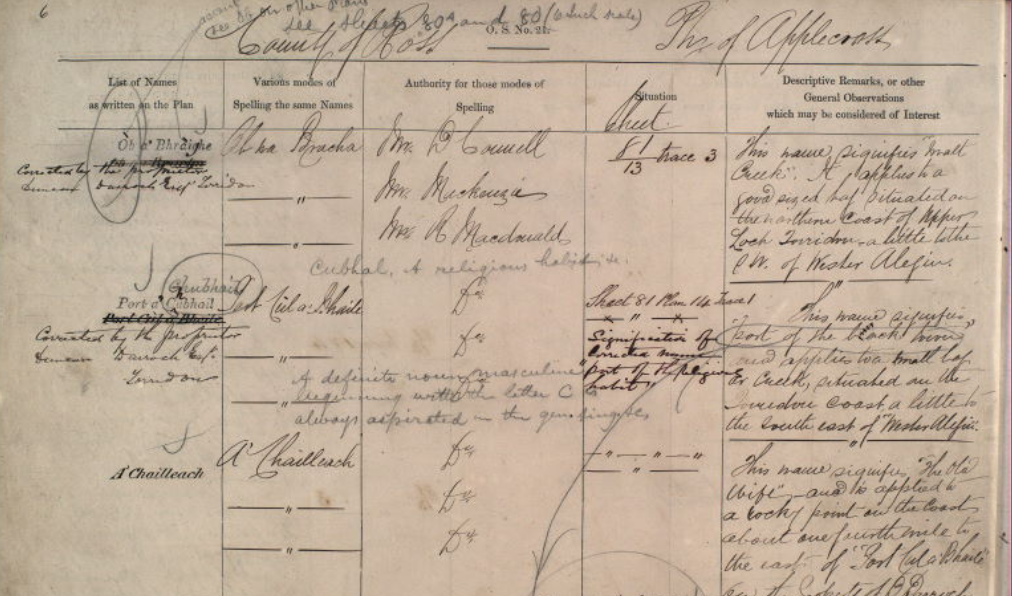 6
see on other Plans
see Sheets 80a and 80 (6 Inch scale)
County of Ross
O. S. No. 21.
Ph. of Applecross
List of Names
as written on the Plan
Various modes of
Spelling the same Names
Authority for those modes of
Spelling
Situation
Descriptive Remarks, or other
General Observations
which may be considered of Interest
Sheet
Òb a' Bhraighe
Corrected by the proprietor
Duncan Darroch Esqr. Torridon
Ob na Bracha
"
"
Mr. D Connell
Mr. Mackenzie
Mr. R Macdonald
81 trace 3
13
This name signifies "malt
Creek". It applies to a
good sized bay situated on
the northern Coast of Upper
Loch Torridon, a little to the
S.W. of Wester Alegin.
"
Cubhal, A religious habit &c.
Chubhail
Port a' Cubhail
Port Cùl a' Bhaile
Corrected by the proprietor
Duncan Darroch Esqr.
Torridon
Port Cùl a' Bhaile
"
"
Do.
Do.
A definite noun masculine
beginning with the letter C is
always aspirated in the gen. sing. &c.
Sheet 81 Plan 14 Trace 1
" 
Signification of
corrected name
"Port of the religious
habit"
This name signifies
"port of the back town"
and applies to a small bay
or Creek, situated on the
Torridon Coast, a little to
the South east of "Wester Alegin".
"
A' Chailleach
A' Chailleach
"
"
Do.
Do.
Do.
" " "
This name signifies "The Old
Wife" and is applied to
a rocky point on the Coast
about one fourth mile to
the east of "Port Cul a' Bhaile"